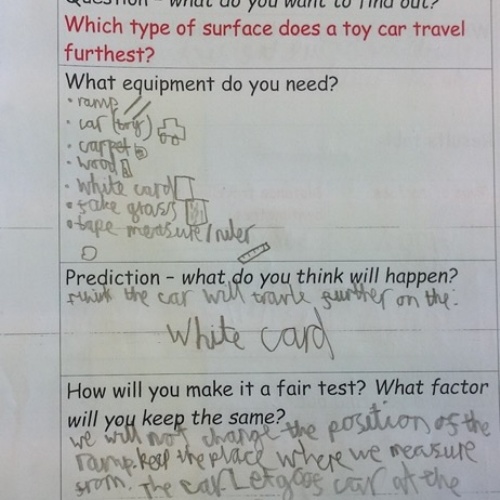 Question - what do you want to find out?
Which type of surface does a toy car travel
furthest?
What equipment do you need?
• ramp
• car (toy)
• carpet
• wood
• white card
• fake grass
• tape measure/ruler
Prediction - what do you think will happen?
I think the car will travle further on the:
White card
How will you make it a fair test? What factor
will you keep the same?
we will not change the position of the
ramp. keep the place where we measure
from. The car Let goas car at the